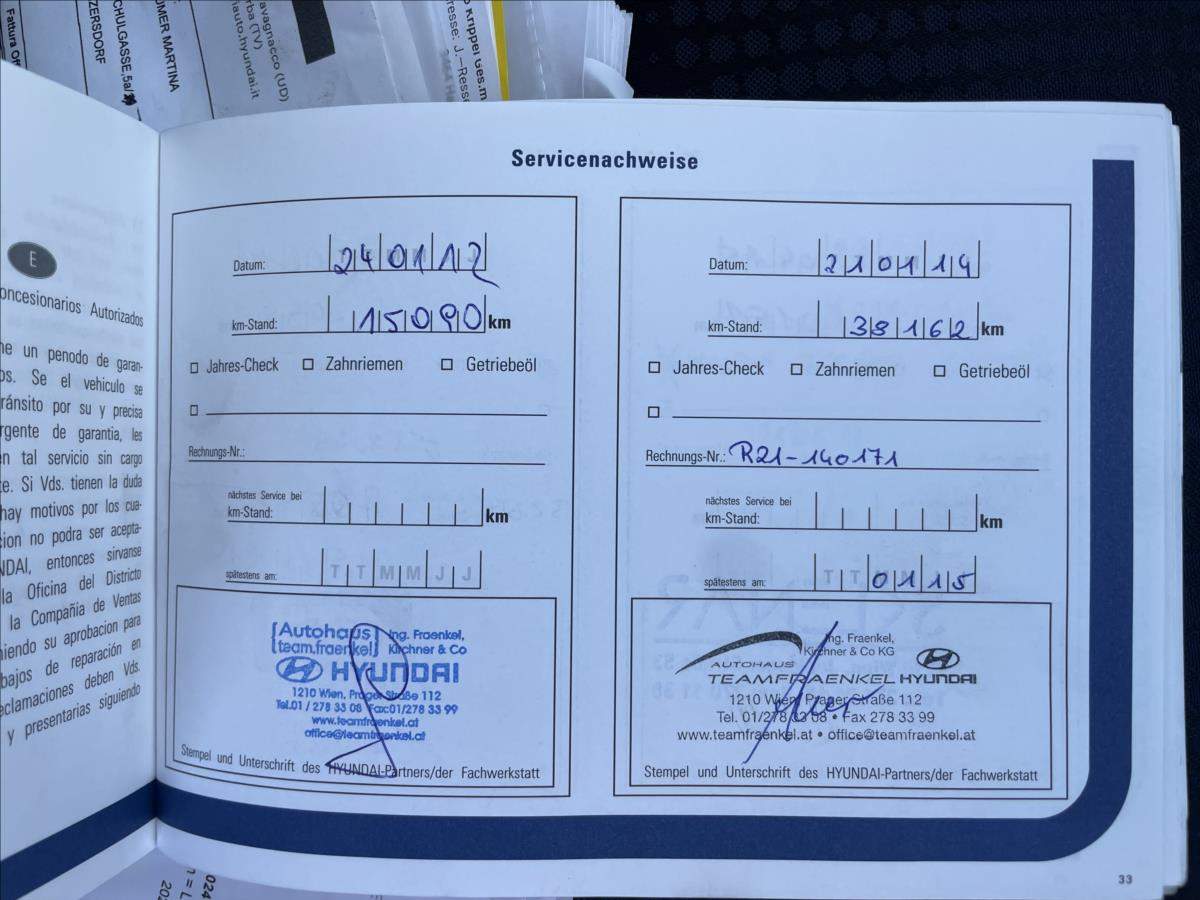 Fattura
ZERSDORF
CHULGASSE,5a/
UMER MARTINA
avagnacco (UD)
rba (TV)
iauto.hyundai.it
Krippel Ges.m
resse: J.-Resse
E
oncesionarios Autorizados
ne un penodo de garan-
os. Se el vehiculo se
ránsito por su y precisa
rgente de garantia, les
en tal servicio sin cargo
te. Si Vds. tienen la duda
hay motivos por los cua-
cion no podra ser acepta-
NDAI, entonces sirvanse
la Oficina del Districto
la Compañia de Ventas
niendo su aprobacion para
bajos de reparación en
eclamaciones deben Vds.
y presentarias siguiendo
Servicenachweise
Datum: 240112
km-Stand: 15090 km
Jahres-Check Zahnriemen Getriebeöl
Rechnungs-Nr.:
nächstes Service bei
km-Stand: km
spätestens am: T T M M J J
[Autohaus]
[team.fraenkel]
Ing. Fraenkel,
Kirchner & Co
HYUNDAI
1210 Wien, Prager Straße 112
Tel.01 / 278 33 08 Fax:01/278 33 99
www.teamfraenkel.at
office@teamfraenkel.at
Stempel und Unterschrift des HYUNDAI-Partners/der Fachwerkstatt
Datum: 210114
km-Stand: 38162 km
Jahres-Check Zahnriemen Getriebeöl
Rechnungs-Nr.: R21-140171
nächstes Service bei
km-Stand: km
spätestens am: T T 0115
Ing. Fraenkel,
Kirchner & Co KG
AUTOHAUS
TEAMFRAENKEL HYUNDAI
1210 Wien, Prager Straße 112
Tel. 01/278 33 08 • Fax 278 33 99
www.teamfraenkel.at • office@teamfraenkel.at
Stempel und Unterschrift des HYUNDAI-Partners/der Fachwerkstatt
33
024